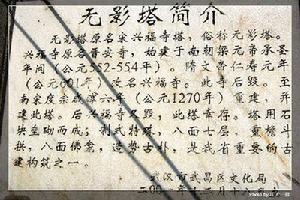 无影塔简介
无影塔原名宋兴福寺塔,俗称无影塔。
兴福寺原名晋安寺,始建于南朝梁元帝承圣
年间(公元552-554年)。隋文帝仁寿元年
(公元601年)改名兴福寺。此寺后毁。至
南宋度宗咸淳六年(公元1270年)重建,并
建此塔。后兴福寺又毁,此塔尚存。塔用石
块垒砌而成;制式特殊,八面七层,重檐斗
拱,八面佛龛,造势古朴,是我省重要的古
建构筑之一。
武汉市武昌区文化局